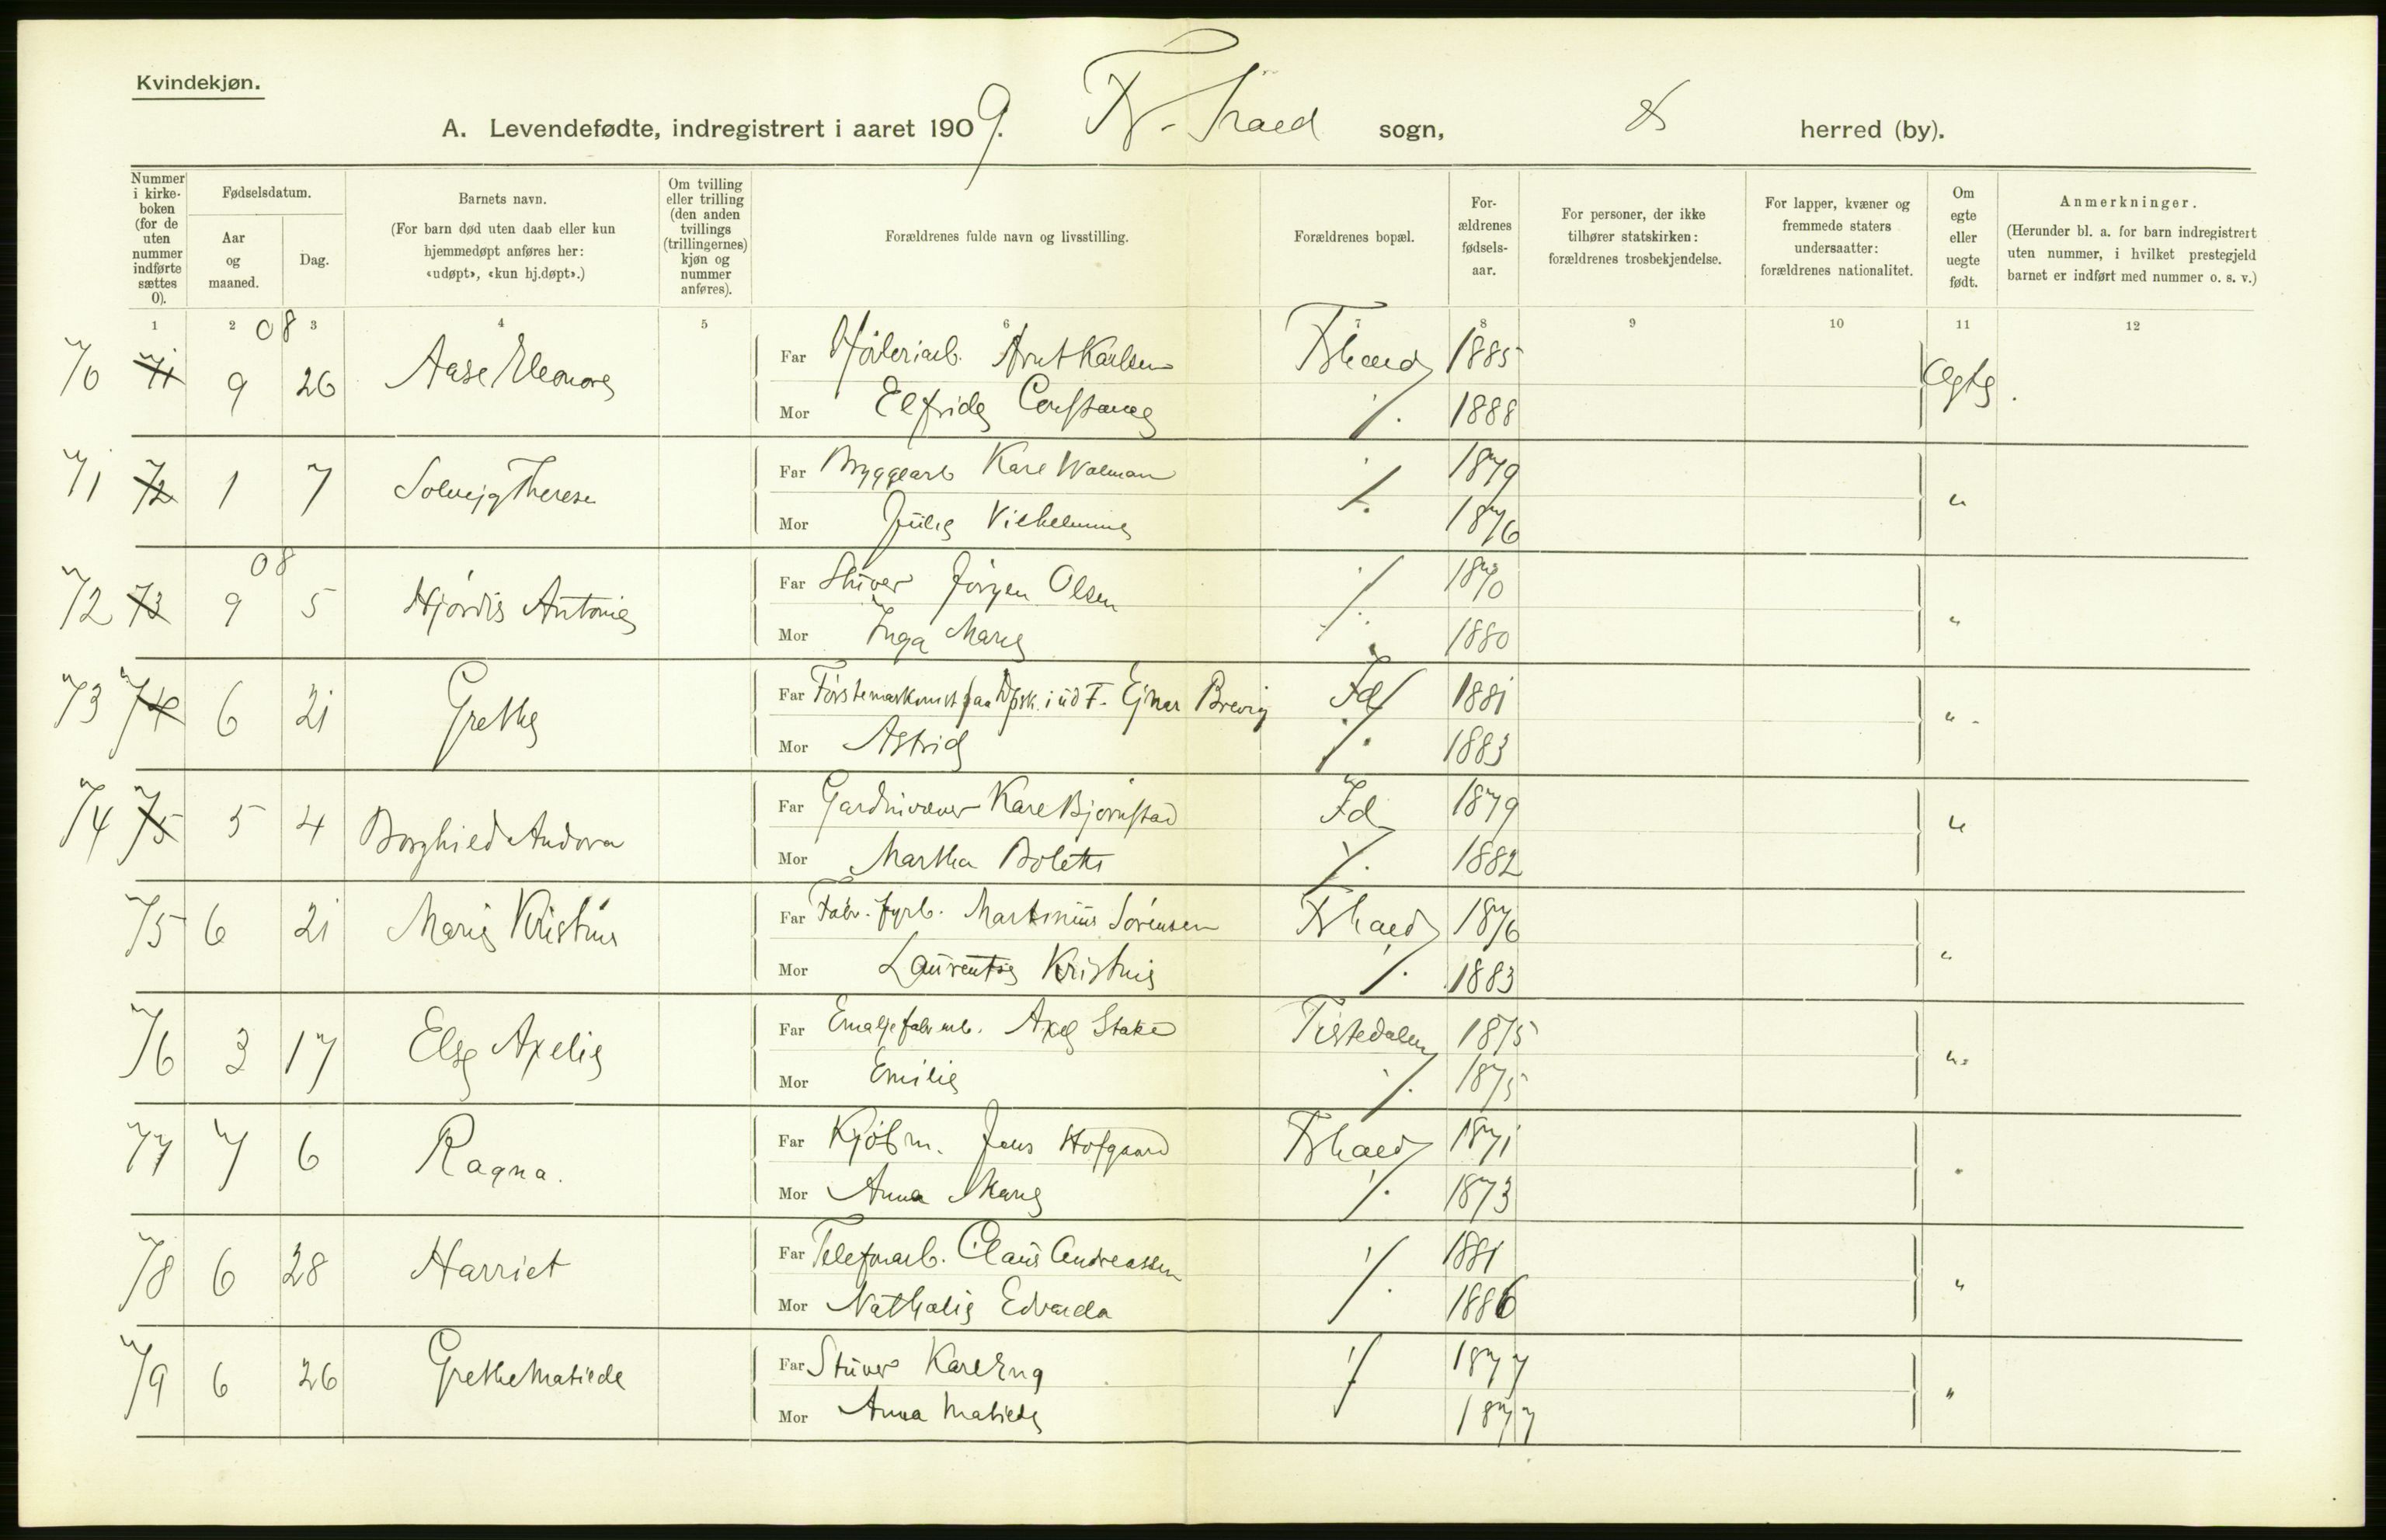 Kvindekjøn.
A. Levendefødte, indregistrert i aaret 1909. Fr.hald sogn, herred (by).
Nummer i kirkeboken (for de uten nummer indførte sættes 0).
Fødselsdatum.
Aar og maaned.
Dag.
Barnets navn.
(For barn død uten daab eller kun hjemmedøpt anføres her: «udøpt», «kun hj.døpt».)
Om tvilling eller trilling (den anden tvillings (trillingernes) kjøn og nummer anføres).
Forældrenes fulde navn og livsstilling.
Forældrenes bopæl.
Forældrenes fødselsaar.
For personer, der ikke tilhører statskirken: forældrenes trosbekjendelse.
For lapper, kvæner og fremmede staters undersaatter: forældrenes nationalitet.
Om egte eller uegte født.
Anmerkninger.
(Herunder bl. a. for barn indregistrert uten nummer, i hvilket prestegjeld barnet er indført med nummer o. s. v.)
1 2 3 4 5 6 7 8 9 10 11 12
08
70 71 9 26 Aase Eleonore Far Karlsen Frhald 1885 Ægte.
Mor Elfride Constance ./. 1888
71 72 1 7 Solveig Therese Far Byggearb Karl Wolman ./. 1879 "
Mor Julie Vilhelmine 1876
08
72 73 9 5 Hjördis Antonie Far Stuver Jörgen Olsen ./. 1870 "
Mor Inga Marie ./. 1880
73 74 6 21 Grethe Far Ejnar Brevig Id 1881 "
Mor Astrid ./. 1883
74 75 5 4 Borghild Andora Far Karl Bjørnstad Id 1879 "
Mor Martha Bolette ./. 1882
75 6 21 Marie Kristine Far Fabr. fyrb. Martinius Sörensen Frhald 1876 "
Mor Laurentse Kristine ./. 1883
76 3 17 Else Axelie Far Emaljefabr arb. Axel Stake Tistedalen 1875 "
Mor Emilie ./. 1875
77 7 6 Ragna. Far Kjøbm. Jens Hofgaard Frhald 1871 "
Mor Anna Marie ./. 1873
78 6 28 Harriet Far Telefonarb. Claus Andreassen ./. 1881 "
Mor Nathalie Edvarda 1886
79 6 26 Grethe Matilde Far Stuver Karl Eng ./. 1877 "
Mor Anna Matilde 1877